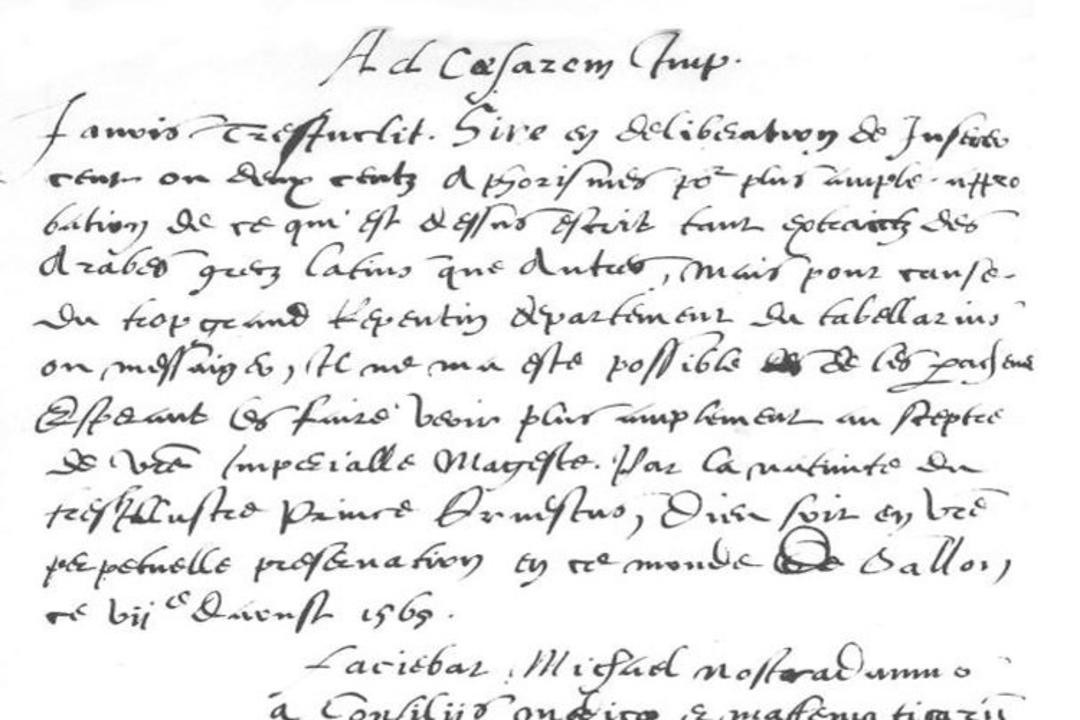 Ad Cæsarem Imp.
Javois Tresinclit. Sire en deliberation de Inserer
cent ou deux centz Aphorismes po^r plus ample appro
bation de ce qui est dessus escrit tant extraictz des
Arabes grecz latins que Autres, Mais pour cause
du trop grand Repentin departement du tabellarius
ou messaiger, Il ne ma este possible de les
Esperant les faire venir plus amplement au sceptre
de vr̃e Imperialle Mageste. Par la nativite du
tresIllustre Prince Ernestus, Dieu soit en vr̃e
perpetuelle preservation en ce monde De Sallon,
ce vij^e Daoust 1565.
Faciebat Michael Nostradamus
a Consiliis medico &